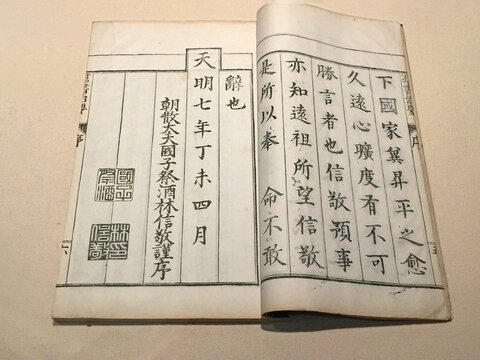 下國家冀昇平之愈
久遠心曠度有不可
勝言者也信敬預事
亦知遠祖所望信敬
是所以奉 命不敢
辭也
天明七年丁未四月
朝散大夫國子祭酒林信敬謹序
國子祭酒
林印信敬
序